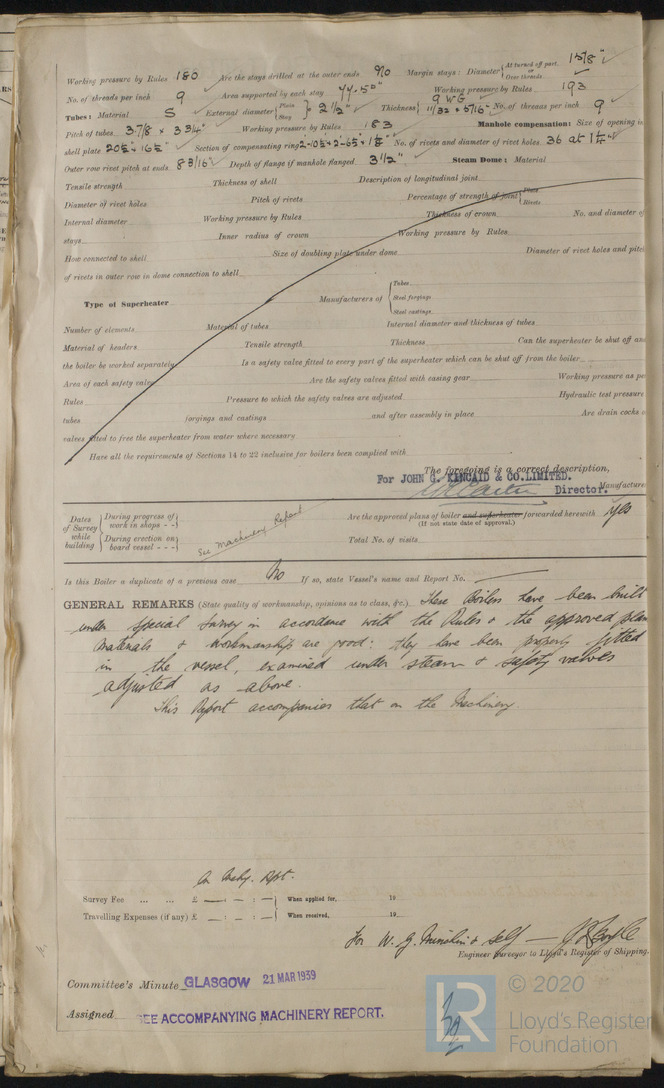 Working pressure by Rules 180 Are the stays drilled at the outer ends No Margin stays: Diameter { At turned off part, or Over threads 1 5/8"
No. of threads per inch 9 Area supported by each stay Working pressure by Rules 193
Tubes: Material S External diameter { Plain Stay } 2 1/2" Thickness { 9 WG 11/32 & 5/16" No. of threads per inch 9
Pitch of tubes 3 7/8 x 3 3/4" Working pressure by Rules 183 Manhole compensation: Size of opening in
shell plate Section of compensating ring No. of rivets and diameter of rivet holes 36 at
Outer row rivet pitch at ends 8 3/16" Depth of flange if manhole flanged 3 1/2" Steam Dome: Material
Tensile strength Thickness of shell Description of longitudinal joint
Diameter of rivet holes Pitch of rivets Percentage of strength of joint { Plate Rivets
Internal diameter Working pressure by Rules Thickness of crown No. and diameter of
stays Inner radius of crown Working pressure by Rules
How connected to shell Size of doubling plate under dome Diameter of rivet holes and pitch
of rivets in outer row in dome connection to shell
Type of Superheater Manufacturers of { Tubes Steel forgings Steel castings
Number of elements Material of tubes Internal diameter and thickness of tubes
Material of headers Tensile strength Thickness Can the superheater be shut off and
the boiler be worked separately Is a safety valve fitted to every part of the superheater which can be shut off from the boiler
Area of each safety valve Are the safety valves fitted with easing gear Working pressure as per
Rules Pressure to which the safety valves are adjusted Hydraulic test pressure
tubes forgings and castings and after assembly in place Are drain cocks o
valves fitted to free the superheater from water where necessary
Have all the requirements of Sections 14 to 22 inclusive for boilers been complied with
The foregoing is a correct description,
For JOHN G. KINCAID & CO. LIMITED.
Director. Manufacturer
Dates of Survey while building { During progress of work in shops - - } { During erection on board vessel - - - } See Machinery Report
Are the approved plans of boiler and superheater forwarded herewith Yes
(If not state date of approval.)
Total No. of visits
Is this Boiler a duplicate of a previous case No If so, state Vessel's name and Report No.
GENERAL REMARKS (State quality of workmanship, opinions as to class, &c.) These Boilers have been built
under special survey in accordance with the Rules & the approved plan
Materials & workmanship are good: they have been properly fitted
in the vessel, examined under steam & safety valves
adjusted as above.
This Report accompanies that on the Machinery.
On Mchy. Rpt.
Survey Fee ... ... £ — : — : — } When applied for, 19
Travelling Expenses (if any) £ — : — : — } When received, 19
For W. G. & Self —
Engineer Surveyor to Lloyd's Register of Shipping.
Committee's Minute GLASGOW 21 MAR 1939
Assigned SEE ACCOMPANYING MACHINERY REPORT.
LR
© 2020
Lloyd's Register
Foundation